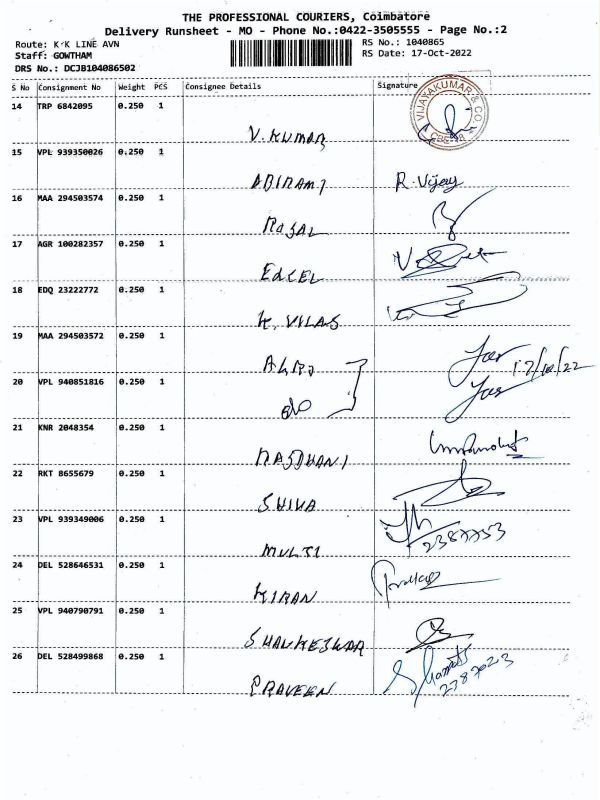 THE PROFESSIONAL COURIERS, Coimbatore
Delivery Runsheet - MO - Phone No.:0422-3505555 - Page No.:2
Route: K K LINE AVN RS No.: 1040865
Staff: GOWTHAM RS Date: 17-Oct-2022
DRS No.: DCJB104086502
S No Consignment No Weight PCS Consignee Details Signature
14 TRP 6842095 0.250 1
VIJAYAKUMAR & CO.
V. KUMAR
15 VPL 939350026 0.250 1
ABIRAMI R. Vijay
16 MAA 294503574 0.250 1
17 AGR 100282357 0.250 1
EDCEL
18 EDQ 23222772 0.250 1
K. VILAS
19 MAA 294503572 0.250 1
17/10/22
20 VPL 940851816 0.250 1
21 KNR 2048354 0.250 1
22 RKT 8655679 0.250 1
SHIVA
23 VPL 939349006 0.250 1
MULTI 2387753
24 DEL 528646531 0.250 1
KIRAN
25 VPL 940790791 0.250 1
SHANKESWAR
26 DEL 528499868 0.250 1
PRAVEEN